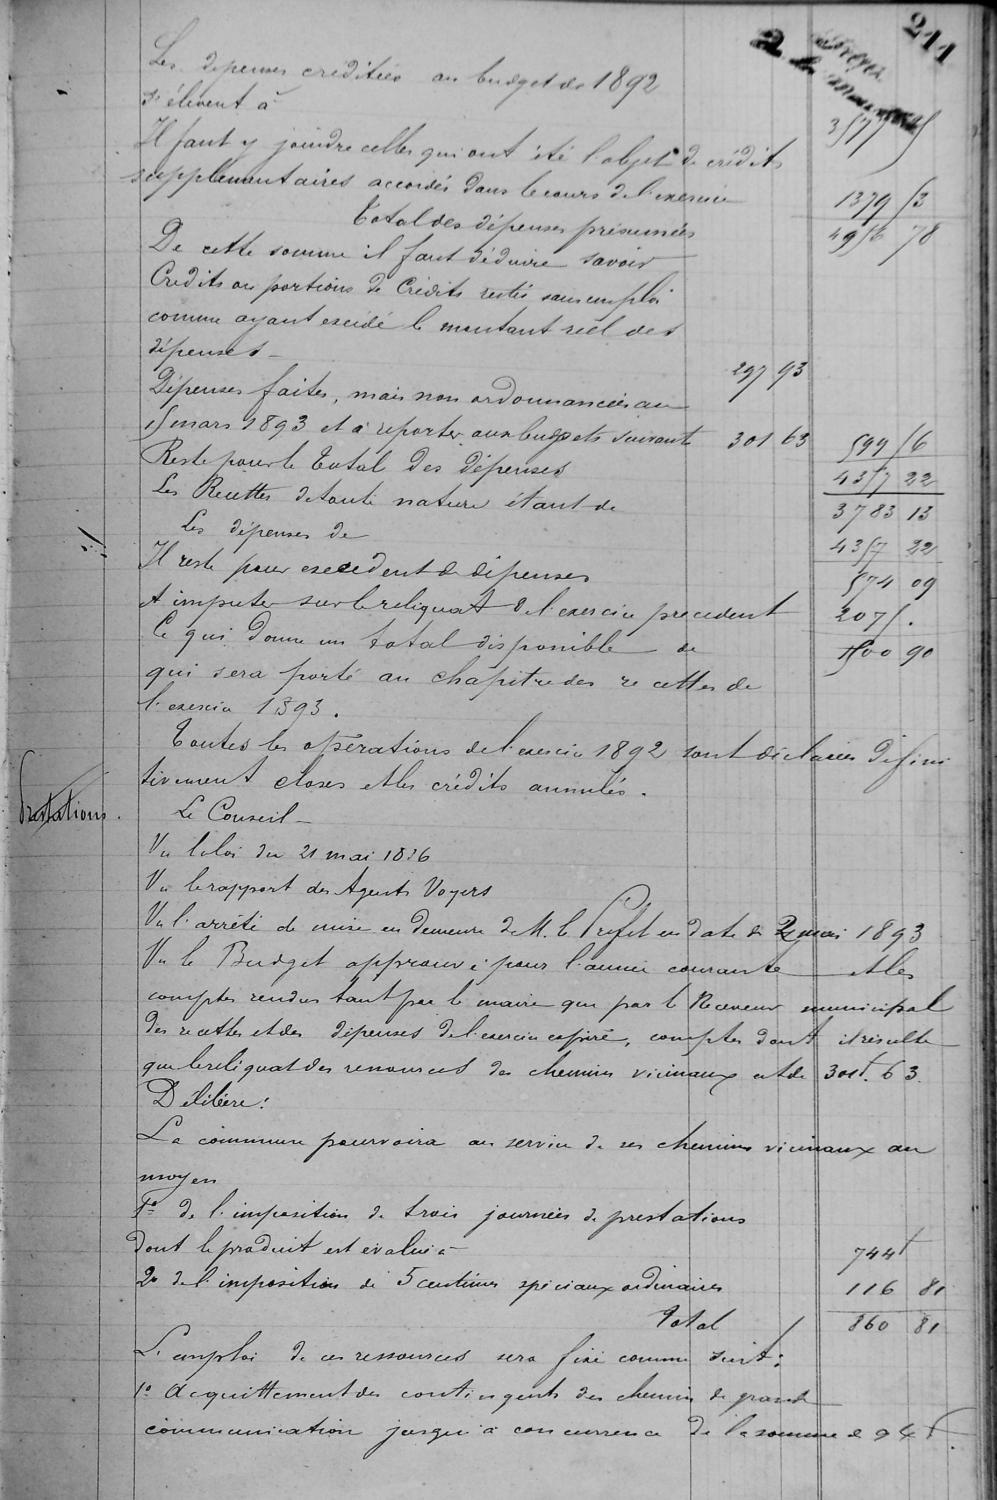 211
Les dépenses créditées au budget de 1892
s'élèvent à 3577 25
Il faut y joindre celles qui ont été l'objet de crédits
supplémentaires accordés dans le cours de l'exercice 1379 53
Total des dépenses présumées 4956 78
De cette somme il faut déduire savoir
Crédits ou portions de Crédits restés sans emploi
comme ayant excédé le montant réel des
dépenses 297 93
Dépenses faites, mais non ordonnancées au
15 mars 1893 et à reporter aux budgets suivant 301 63 599 56
Reste pour le total des dépenses 4357 22
Les Recettes de toute nature étant de 3783 13
Les dépenses de 4357 22
Il reste pour excedent de dépenses 574 09
A imputer sur le reliquat de l'exercice precedent 2075 .
Ce qui donne un total disponible de 1500 90
qui sera porté au chapitre des recettes de
l'exercice 1893.
Toutes les opérations de l'exercice 1892 sont déclarées défini
tivement closes et les crédits annulés.
Prestations.
Le Conseil
Vu la loi du 21 mai 1836
Vu le rapport des Agents Voyers
Vu l'arrêté de mise en demeure de M. le Préfet en date du mai 1893
Vu le Budget approuvé pour l'année courante et les
comptes rendus tant par le maire que par le Receveur municipal
des recettes et des dépenses de l'exercice expiré, comptes dont il résulte
que le reliquat des ressources des chemins vicinaux est de 301f. 63
Délibère:
La commune pourvoira au service de ses chemins vicinaux au
moyen
1º de l'imposition de trois journées de prestations
dont le produit est évalué à 744f
2º de l'imposition de 5 centimes spéciaux ordinaires 116 81
Total 860 81
L'emploi de ces ressources sera fixé comme suit:
1º Acquittement des contingents des chemins de grande
communication jusqu'à concurrence de la somme de 94f.